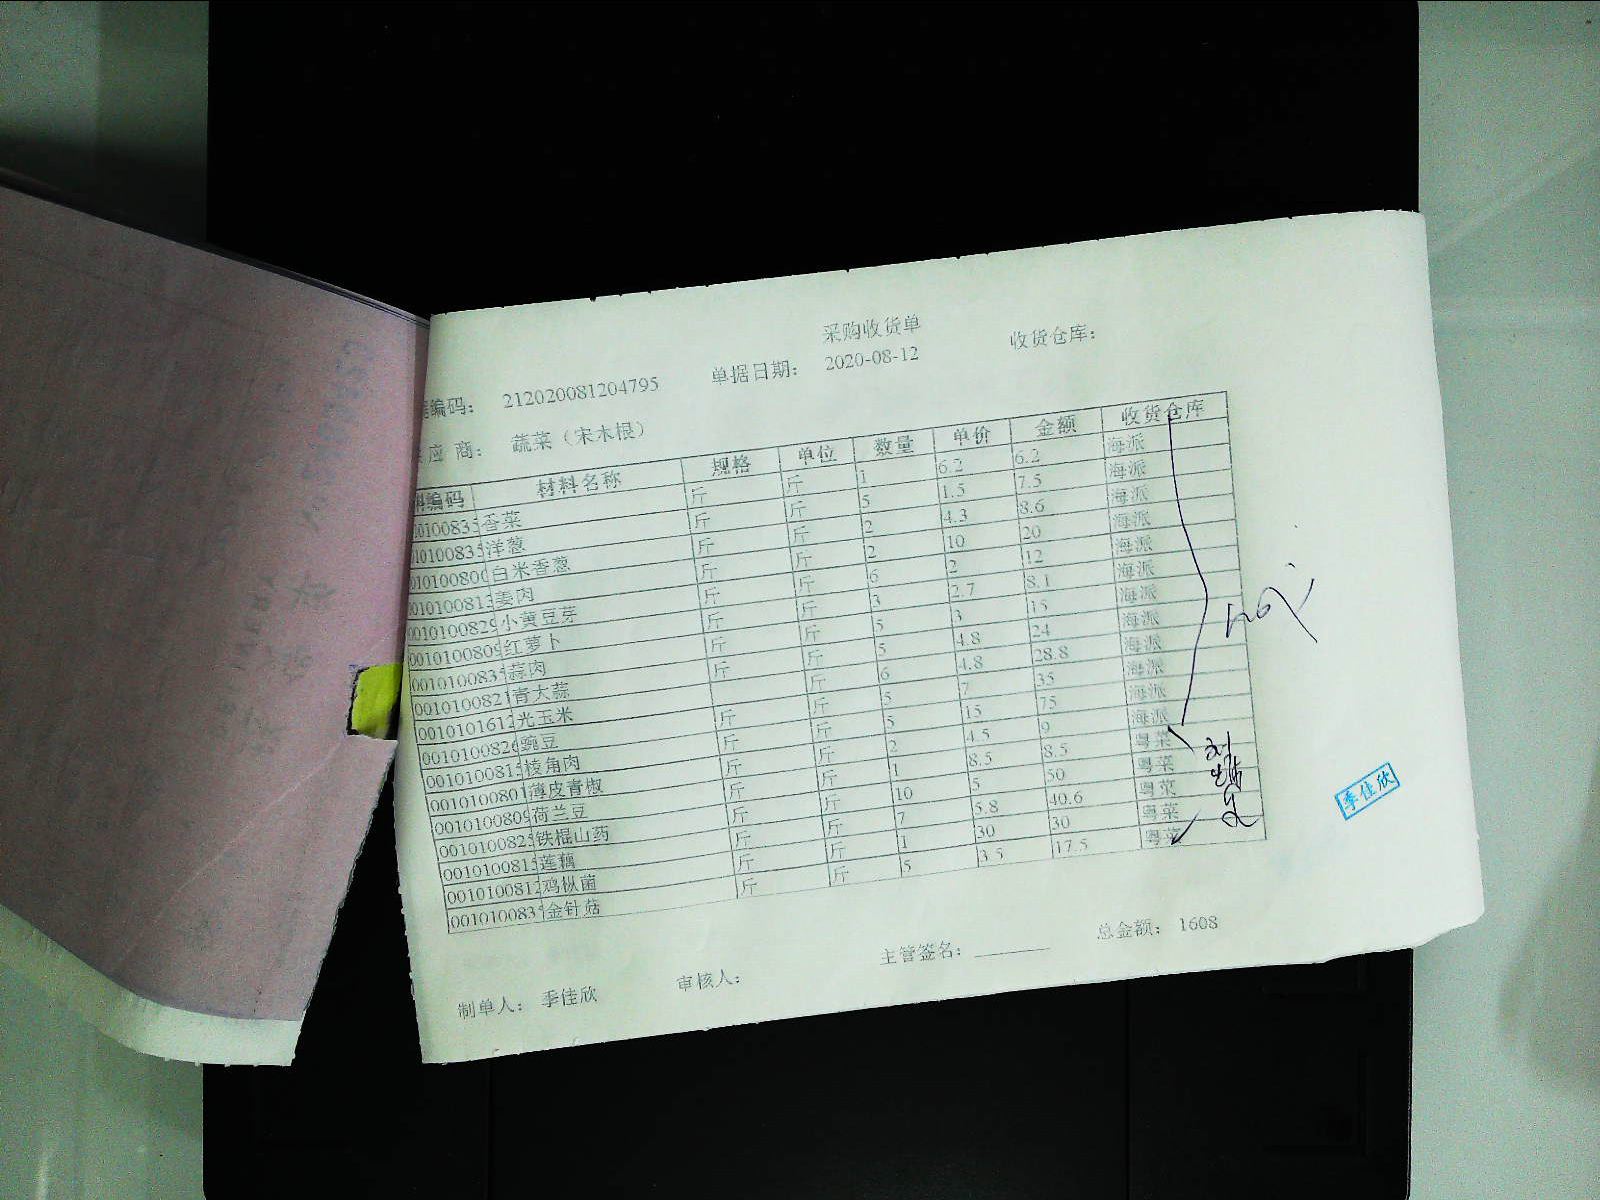 采购收货单
编码： 212020081204795 单据日期： 2020-08-12 收货仓库：
应 商： 蔬菜（宋木根）
编码 材料名称 规格 单位 数量 单价 金额 收货仓库
010100835 香菜 斤 斤 1 6.2 6.2 海派
010100835 洋葱 斤 斤 5 1.5 7.5 海派
010100800 白米香葱 斤 斤 2 4.3 8.6 海派
0010100813 姜肉 斤 斤 2 10 20 海派
0010100829 小黄豆芽 斤 斤 6 2 12 海派
0010100809 红萝卜 斤 斤 3 2.7 8.1 海派
001010083 蒜肉 斤 斤 5 3 15 海派
0010100821 青大蒜 斤 斤 5 4.8 24 海派
0010101612 光玉米 斤 6 4.8 28.8 海派
0010100826 豌豆 斤 斤 5 7 35 海派
001010081 棱角肉 斤 斤 5 15 75 海派
0010100801 薄皮青椒 斤 斤 2 4.5 9 海派
0010100809 荷兰豆 斤 斤 1 8.5 8.5 粤菜
001010082 铁棍山药 斤 斤 10 5 50 粤菜
001010081 莲藕 斤 斤 7 5.8 40.6 粤菜
0010100812 鸡枞菌 斤 斤 1 30 30 粤菜
001010083 金针菇 斤 斤 5 3.5 17.5 粤菜
季佳欣
制单人： 季佳欣 审核人： 主管签名： 总金额： 1608